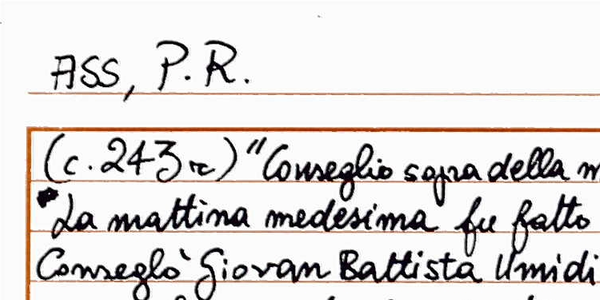 ASS, P.R.
(c. 243r) "Conseglio sopra della
"La mattina medesima fu fatto
Conseglo` Giovan Battista Umidi